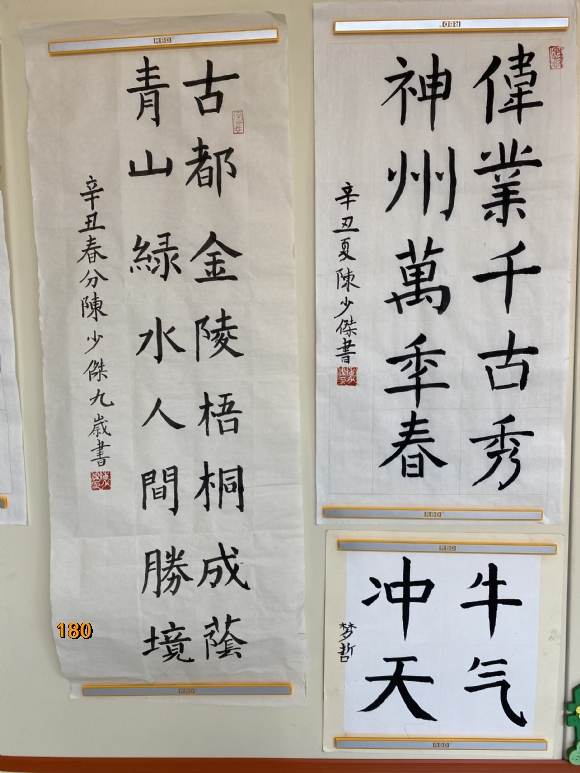 古都金陵梧桐成蔭
青山緑水人間勝境
辛丑春分陳少傑九歲書
偉業千古秀
神州萬季春
辛丑夏陳少傑書
牛气
冲天
梦哲
180